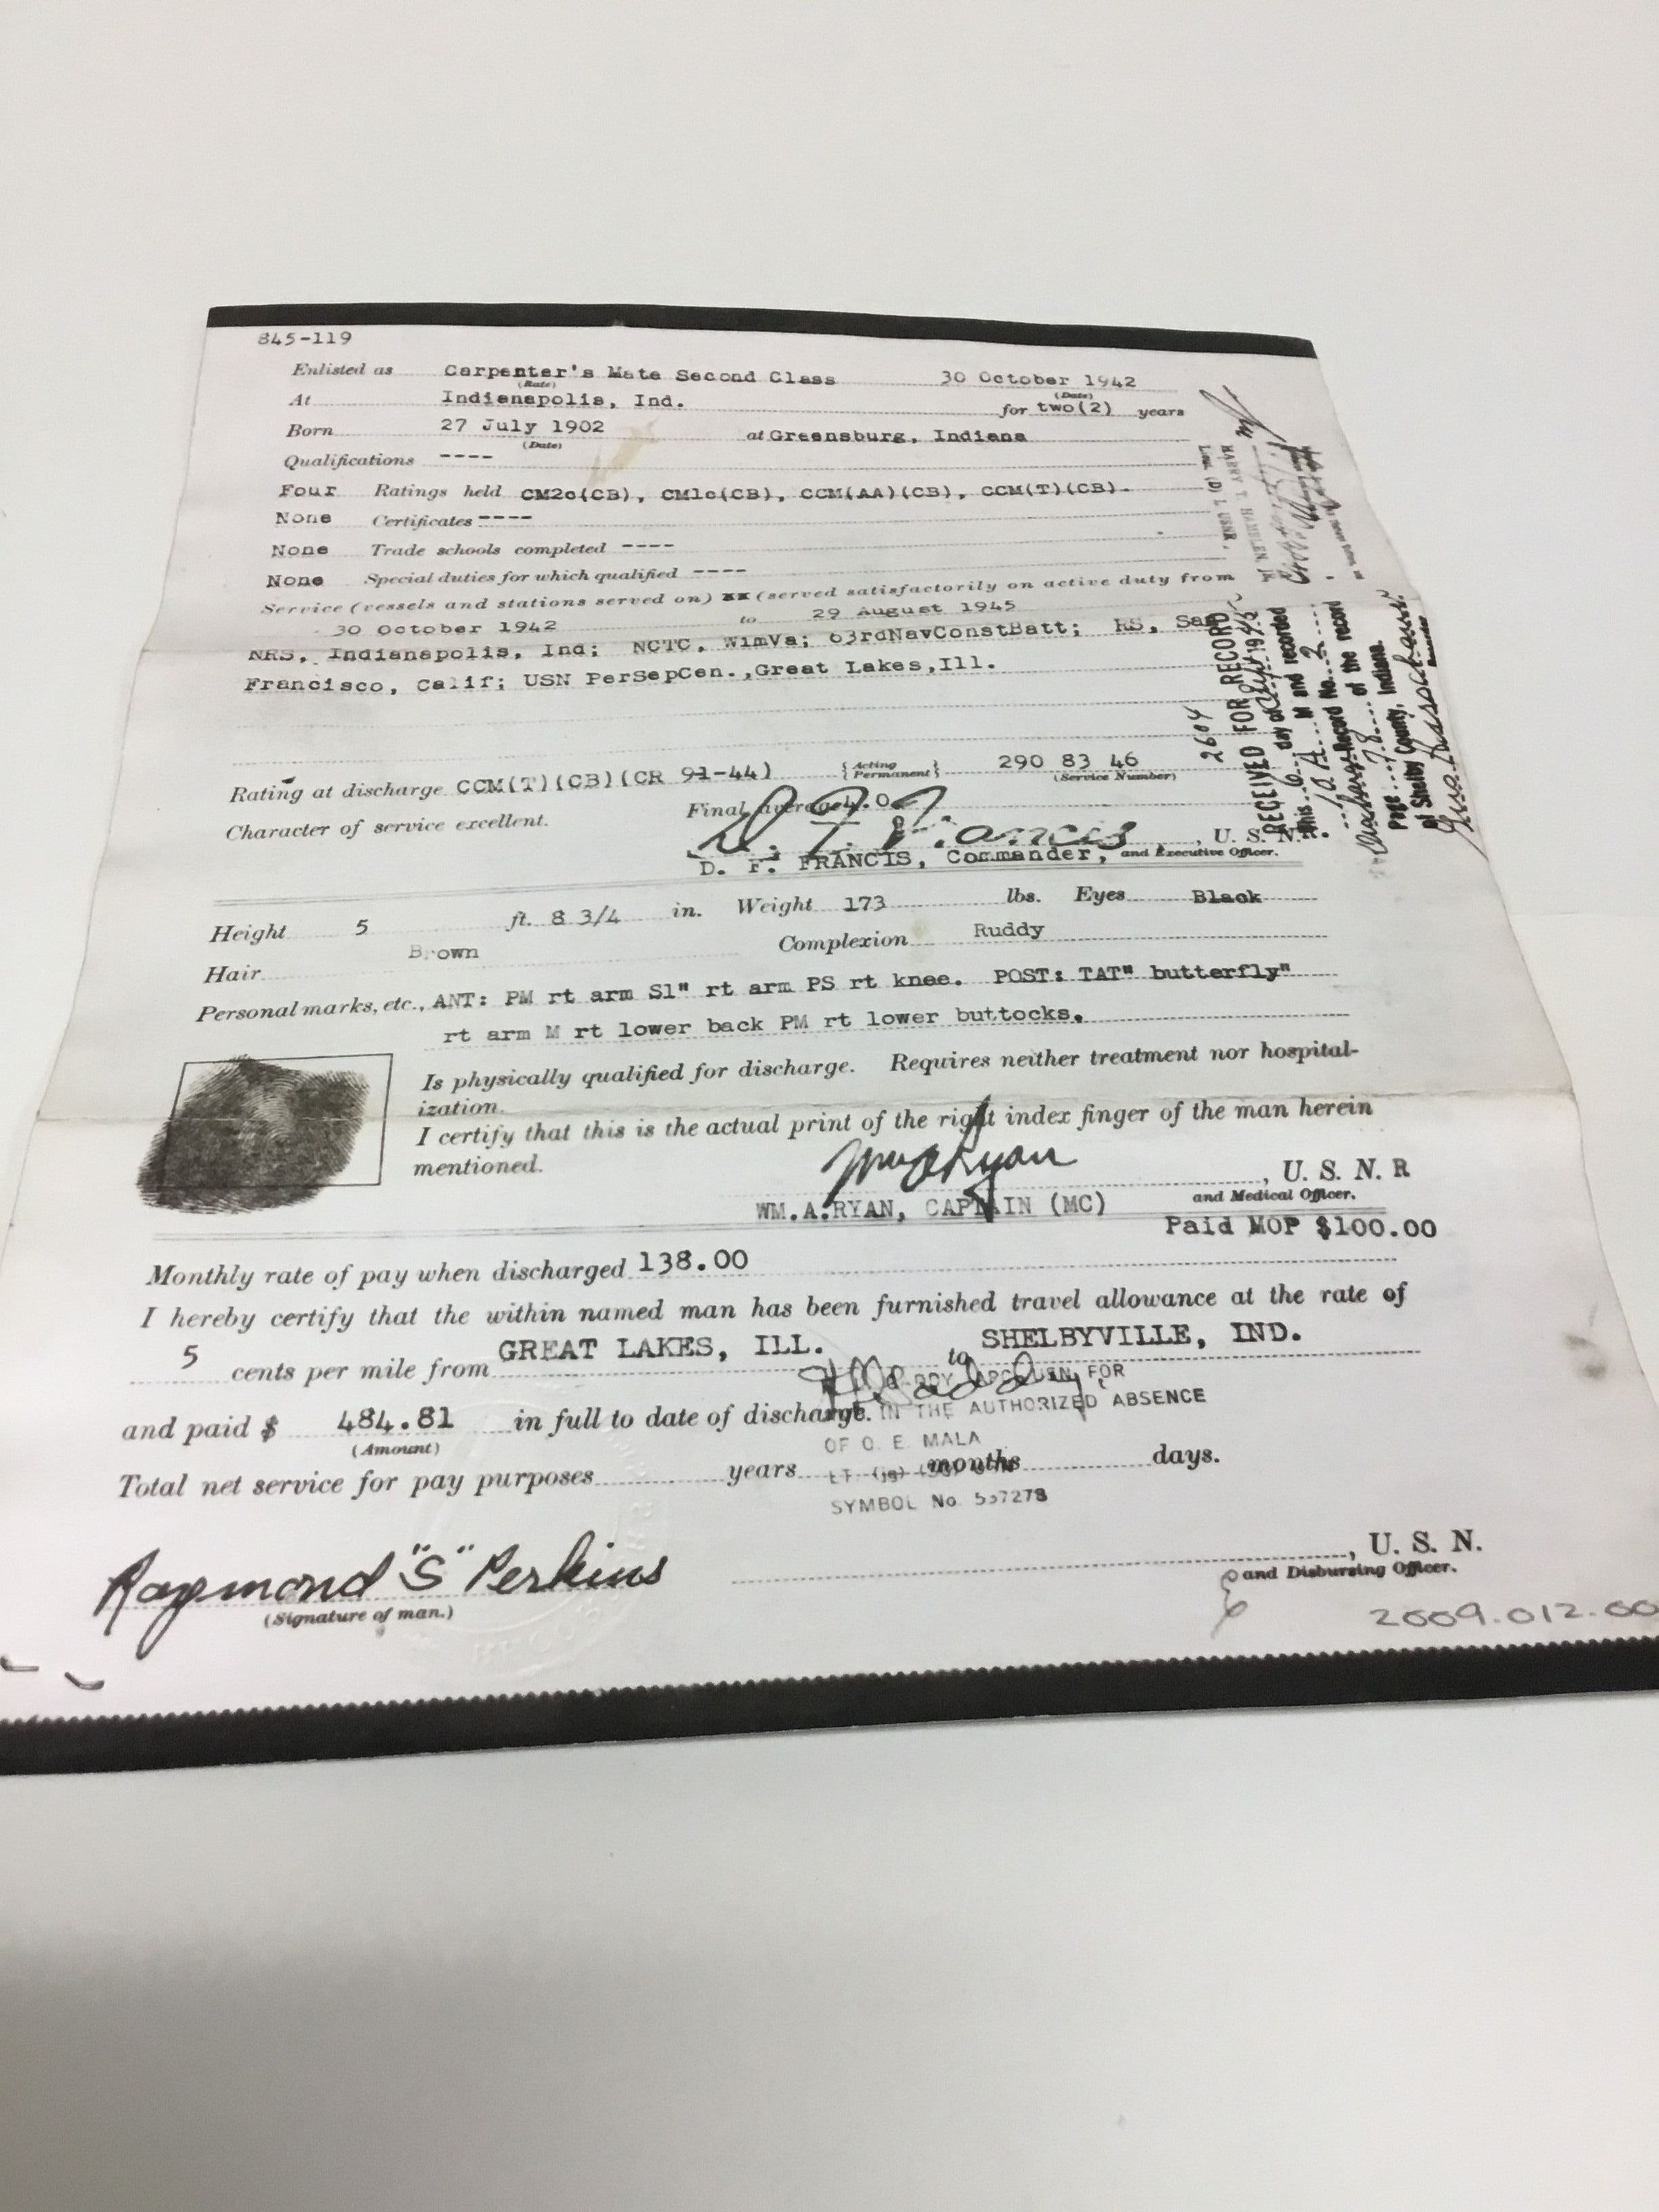 845-119
Enlisted as Carpenter's Mate Second Class 30 October 1942
(Rate) (Date)
At Indianapolis, Ind. for two(2) years
Born 27 July 1902 at Greensburg, Indiana
(Date)
Qualifications ----
Four Ratings held CM2c(CB), CM1c(CB), CCM(AA)(CB), CCM(T)(CB).
None Certificates ----
None Trade schools completed ----
None Special duties for which qualified ----
Service (vessels and stations served on) xx (served satisfactorily on active duty from
30 October 1942 to 29 August 1945
NRS, Indianapolis, Ind; NCTC, WimVa; 63rdNavConstBatt; RS, San
Francisco, Calif; USN PerSepCen.,Great Lakes,Ill.
Rating at discharge CCM(T)(CB)(CR 91-44) {Acting Permanent} 290 83 46
(Service Number)
Character of service excellent. Final average 4.0
D. F. Francis, U. S. N.
D. F. FRANCIS, Commander, and Executive Officer.
Height 5 ft. 8 3/4 in. Weight 173 lbs. Eyes Black
Hair Brown Complexion Ruddy
Personal marks, etc., ANT: PM rt arm S1" rt arm PS rt knee. POST: TAT" butterfly"
rt arm M rt lower back PM rt lower buttocks.
Is physically qualified for discharge. Requires neither treatment nor hospital-
ization.
I certify that this is the actual print of the right index finger of the man herein
mentioned.
Wm A Ryan, U. S. N. R
WM.A.RYAN, CAPTAIN (MC) and Medical Officer.
Paid MOP $100.00
Monthly rate of pay when discharged 138.00
I hereby certify that the within named man has been furnished travel allowance at the rate of
5 cents per mile from GREAT LAKES, ILL. to SHELBYVILLE, IND.
and paid $ 484.81 in full to date of discharge.
(Amount)
USN FOR
IN THE AUTHORIZED ABSENCE
OF O. E. MALA
SYMBOL No. 557278
Total net service for pay purposes years months days.
Raymond "S" Perkins
(Signature of man.)
, U. S. N.
and Disbursing Officer.
2009.012.00
2604
RECEIVED FOR RECORD
This 6 day of 19
M and recorded
Discharge Record No. 2
Page 78 of the record
of Shelby County, Indiana.
Recorder